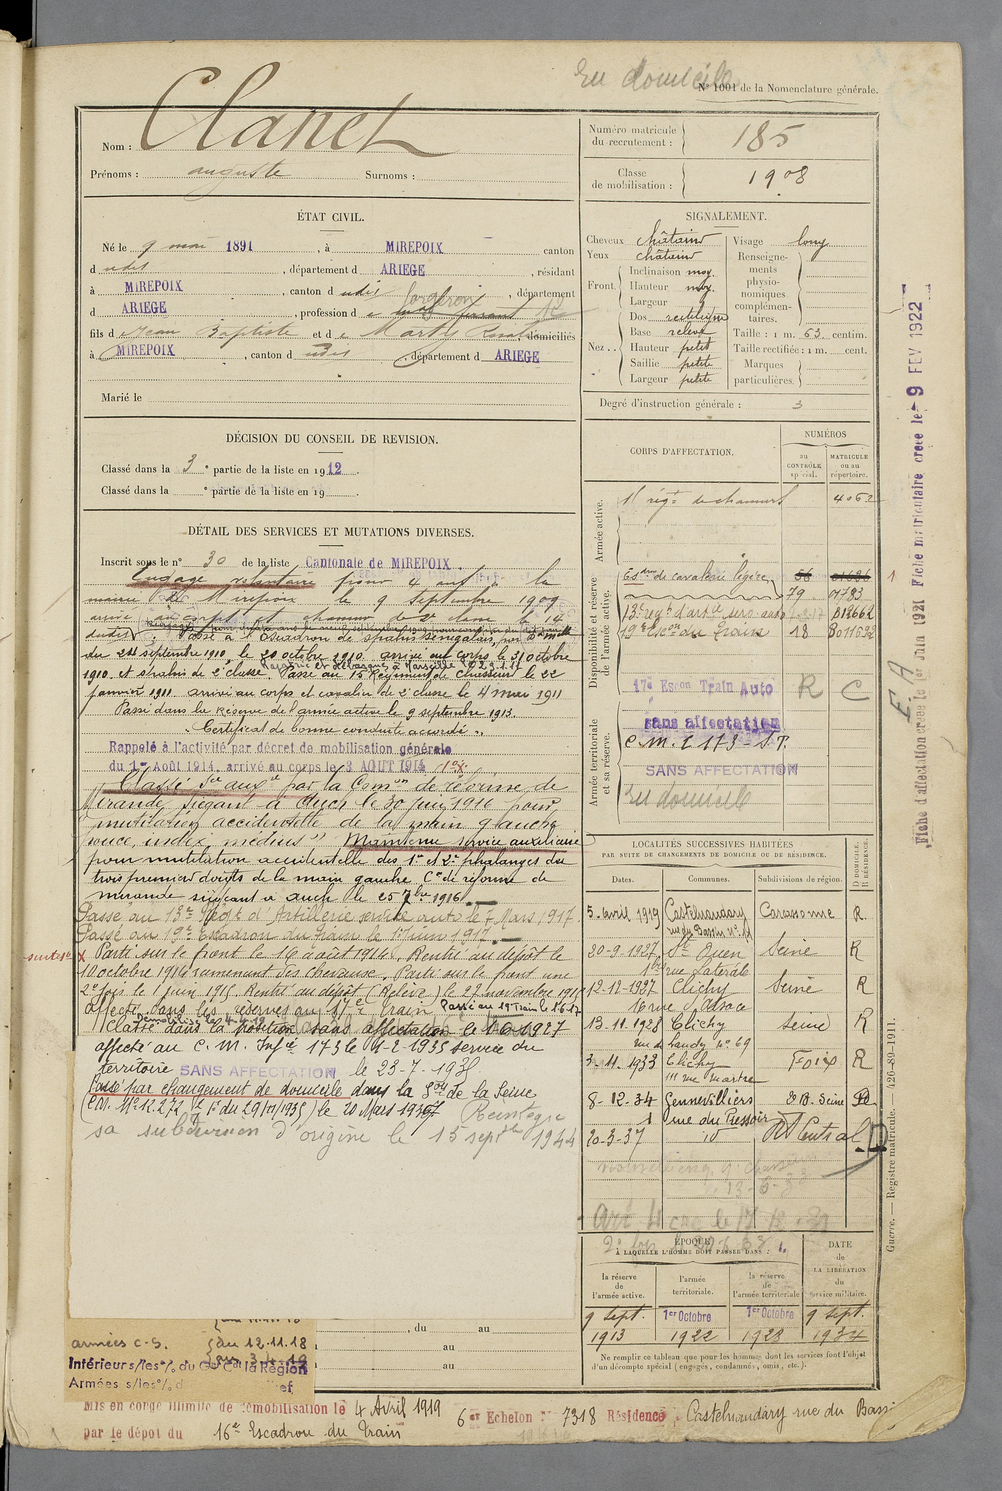 En domicile
N° 1001 de la Nomenclature générale.
Nom : Clanet
Prénoms : auguste Surnoms :
Numéro matricule du recrutement : 185
Classe de mobilisation : 1908
ÉTAT CIVIL.
Né le 9 mai 1891, à MIREPOIX canton
d udit, département d ARIEGE, résidant
à MIREPOIX, canton d udit, département
d ARIEGE, profession d forgeron
fils d e Jean Baptiste et d e Marty domiciliés
à MIREPOIX, canton d udit, département d ARIEGE
Marié le
SIGNALEMENT.
Cheveux châtains
Yeux châtains
Front. Inclinaison moy.
Hauteur moy.
Largeur
Nez.. Dos rectiligne
Base relevé
Hauteur petit
Saillie petite
Largeur petite
Visage long
Renseignements physionomiques complémentaires.
Taille : 1 m. 63. centim.
Taille rectifiée : 1 m. cent.
Marques particulières.
Degré d'instruction générale : 3
DÉCISION DU CONSEIL DE REVISION.
Classé dans la 3e partie de la liste en 1912.
Classé dans la e partie de la liste en 19 .
DÉTAIL DES SERVICES ET MUTATIONS DIVERSES.
Inscrit sous le n° 30 de la liste Cantonale de MIREPOIX
Engagé volontaire pour 4 ans à la
mairie de Mirepoix le 9 septembre 1909
arrivé au corps et chasseur de 2e classe le 14
dudit. Passé à l'Escadron de spahis sénégalais,
du 24 septembre 1910, le 20 octobre 1910. arrivé au corps le 31 octobre
1910. et spahis de 2e classe. Passé au 15 Régiment de chasseurs le 22
janvier 1911. arrivé au corps et cavalier de 2e classe le 4 mai 1911
Passé dans la Réserve de l'armée active le 9 septembre 1913.
Certificat de bonne conduite accordé
Rappelé à l'activité par décret de mobilisation générale
du 1er Août 1914, arrivé au corps le 3 AOUT 1914
Classé Sce aux. par la Comon de réforme de
Mirande siégeant à Auch le 30 juin 1916 pour
mutilation accidentelle de la main gauche
pouce, index, médius" Maintenu service auxiliaire
pour mutilation accidentelle des 1e et 2e phalanges des
trois premiers doigts de la main gauche Con de réforme de
mirande siégeant à auch le 25 7bre 1916.
Passé au 13e Régt d'Artillerie service auto le 7 Mars 1917
Passé au 19e Escadron du Train le 1er Juin 1917.
Parti sur le front le 16 août 1914. Rentré au dépôt le
10 octobre 1914 ramenant des chevaux. Parti sur le front une
2e fois le 1 juin 1915. Rentré au dépôt (Relève) le 27 novembre 1915
affecté dans les réserves au 17e train Passé au 19e Train le 1-6-17
Classé dans la position sans affectation le 1-6-1927
affecté au C. M. Infie 173 le 4-2-1935 service du
territoire SANS AFFECTATION le 23-7-193
Passé par changement de domicile dans la Son de la Seine
le 20 Mars 1937 Réintègre
sa subdivision d'origine le 15 septbre 1944
CORPS D'AFFECTATION.
NUMÉROS
au CONTRÔLE spécial.
MATRICULE ou au répertoire.
Armée active.
15 régt de chasseurs 4062
Disponibilité et réserve de l'armée active.
de cavalerie légère 56
79
13e régt d'artie serv. auto
19e Escon du Train 18
17e Escon Train Auto R C
Armée territoriale et sa réserve.
sans affectation
C. M. I 173 - S.T.
SANS AFFECTATION
En domicile
LOCALITÉS SUCCESSIVES HABITÉES
PAR SUITE DE CHANGEMENTS DE DOMICILE OU DE RÉSIDENCE.
Dates. Communes. Subdivisions de région. D DOMICILE. R RÉSIDENCE.
5. avril 1919 Castelnaudary Carcassonne R.
rue du Bassin n° 11
20-9-1927 St Ouen Seine R
rue Latérale
12-12-1927 Clichy Seine R
16 rue d'Alsace
13.11.1928 Clichy Seine R
rue de Landy n° 69
3-11-1933 Clichy Foix R
111 rue Martre
8-12-34 Gennevilliers
1 rue du Pressoir
20-3-37 id Central D
ÉPOQUE
À LAQUELLE L'HOMME DOIT PASSER DANS :
la réserve de l'armée active.
l'armée territoriale.
la réserve de l'armée territoriale
DATE de LA LIBÉRATION du service militaire.
9 sept. 1913
1er Octobre 1922
1er Octobre 1928
9 sept. 1934
Ne remplir ce tableau que pour les hommes dont les services font l'objet
d'un décompte spécial (engagés, condamnés, omis, etc.).
, du au
au
au
armées C-S. du 12.11.18
Intérieur s/les % du Gal Ct la Région
Armées s/les % d
Mis en congé illimité de démobilisation le 4 Avril 1919 6er Echelon N° 7318 Résidence : Castelnaudary rue du Bassin
par le dépôt du 16e Escadron du Train
Guerre. — Registre matricule. — 420-89-1911.
Fiche d'affectation créée le 1er Juin 1921 Fiche matriculaire créée le 9 FEV 1922
E. A